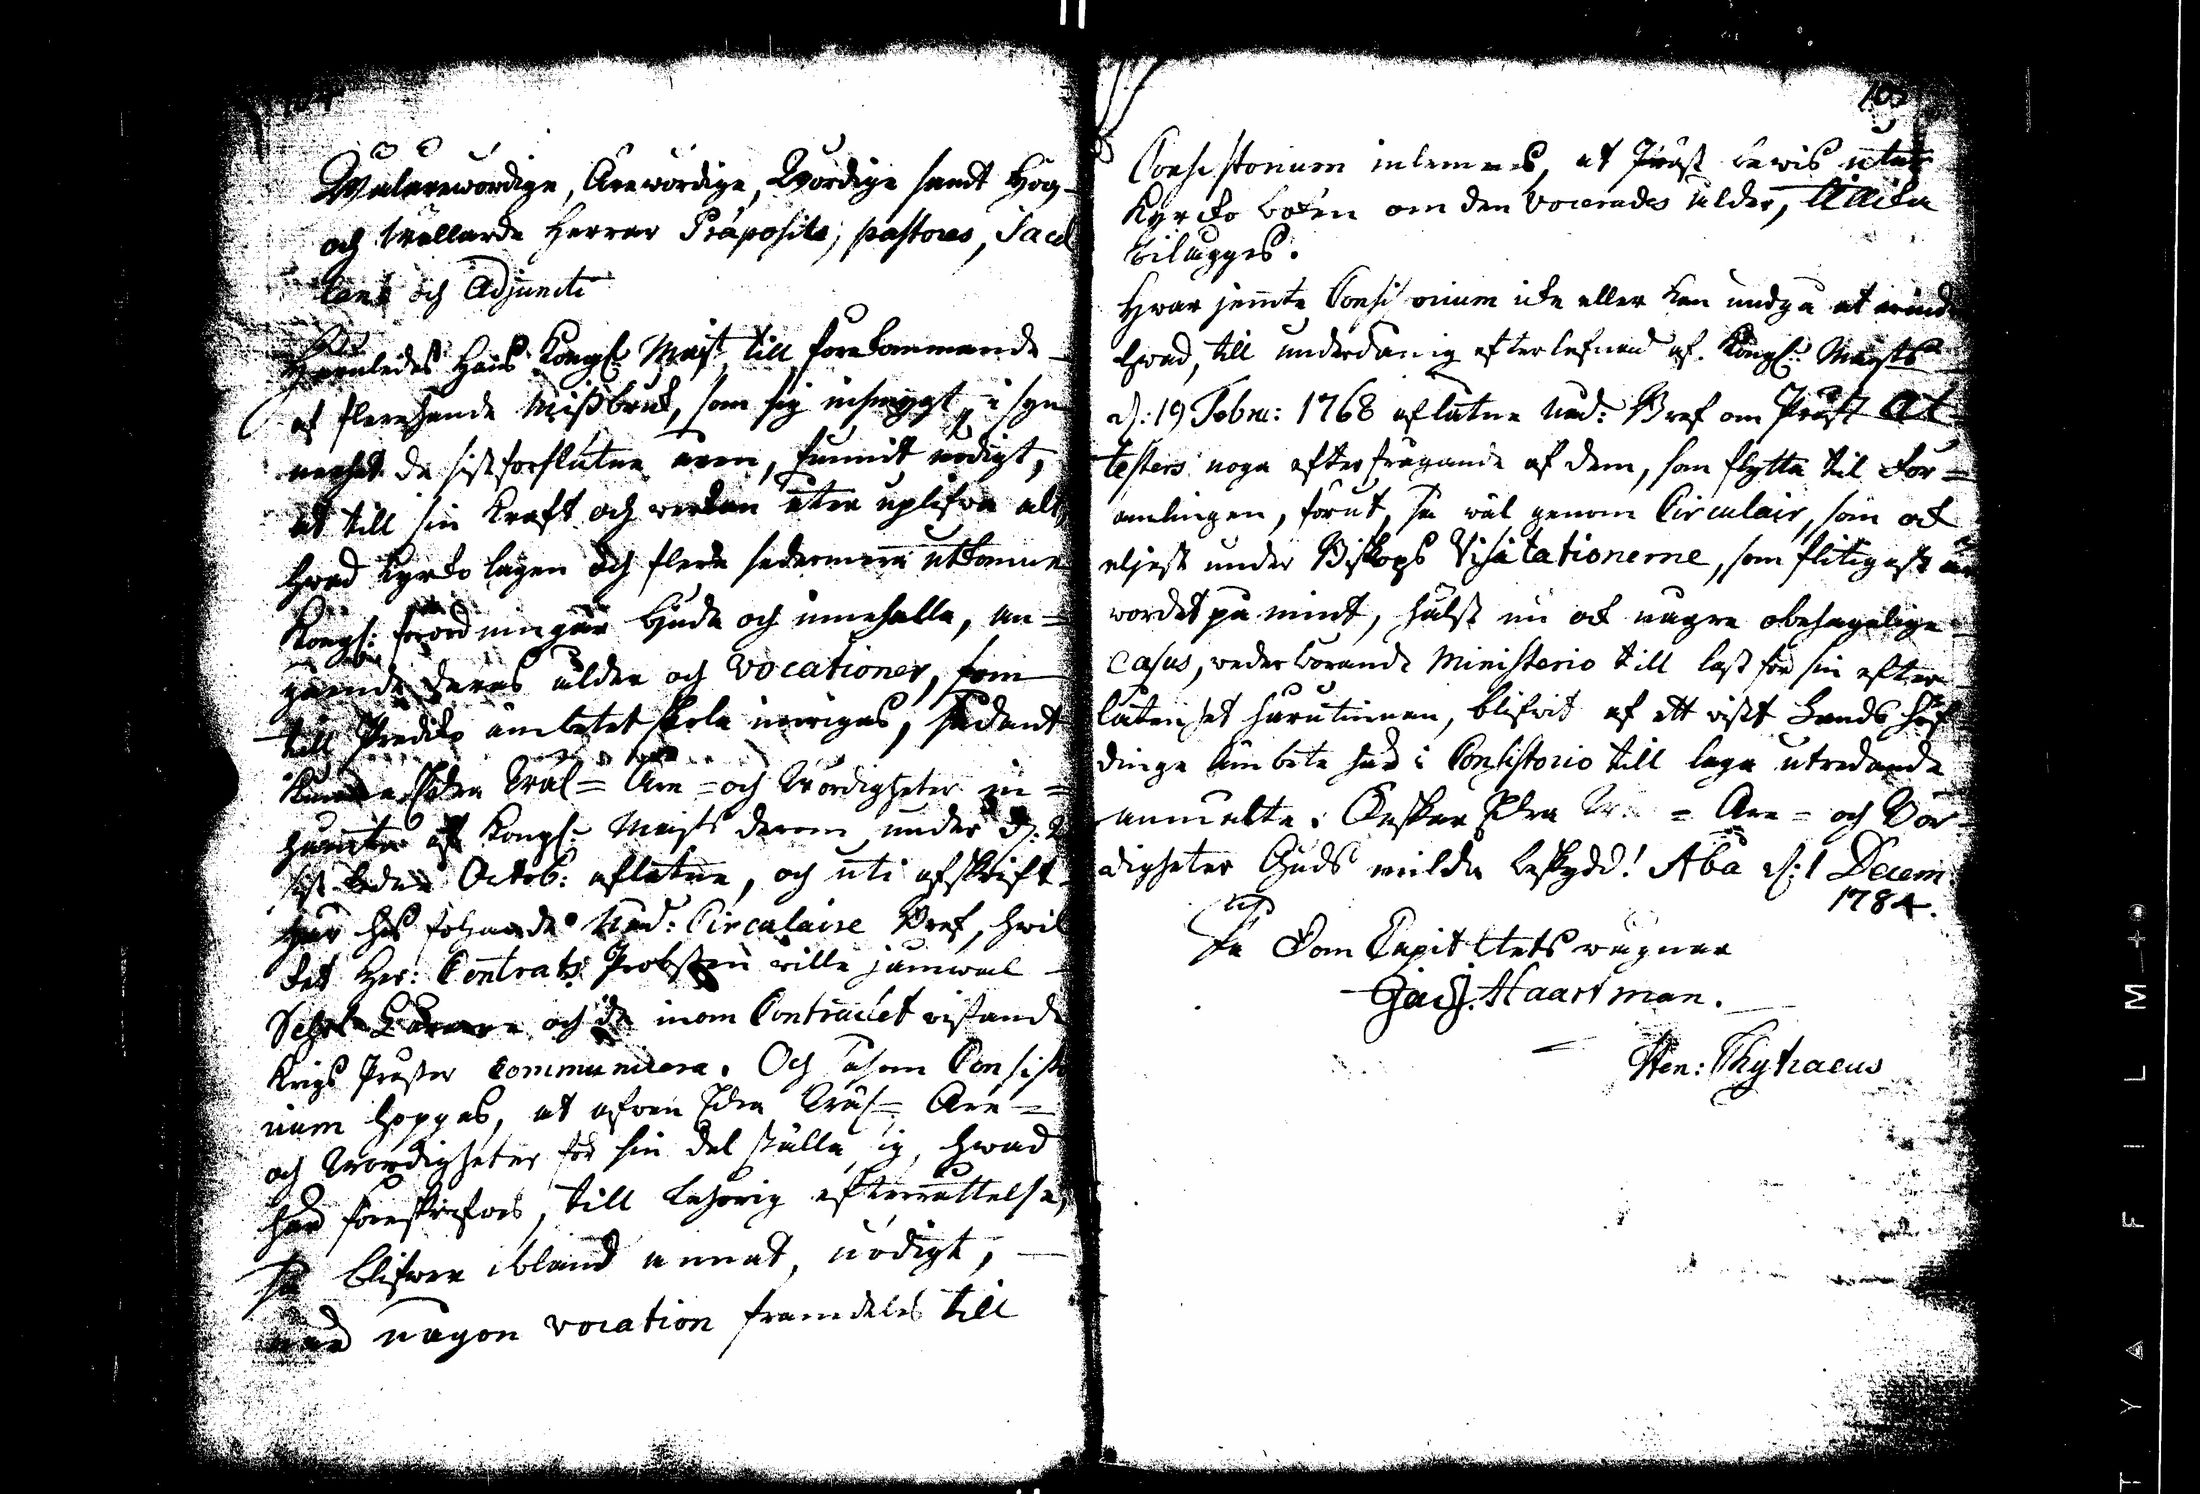 Wälärewördige, Ärewördige, Wördige samt Hög-
och Wällärde Herrar Præpositi, pastores, Sacel
lani och Adjuncti
Huruledes Hans Kongl: Maj:t till förekommande
af flerehande Missbruk, som sig insmygt, i syn
nerhet de sistförflutne åren, funnit nödigt,
at till sin kraft och werkan åter uplifwa alt,
hwad kyrko lagen och flere sedermera utkomne
Kongl: förordningar biuda och innehålla, an=
gående deras ålder och vocationer, som
till Predik ämbetet skola invigas, sådant
kunna Eder Wäl= Äre= och Wördigheter in=
hämta af Kongl: Maj:ts derom under d:
sistledne Octob: aflåtne, och uti afskrift
här hos följande Nåd: Circulaire Bref, hwil
ket Her: Contracts Probsten wille jämwäl
Schole Lärare och de inom Contractet wistande
Krigs Präster communicera. Och såsom Consisto
rium hoppas, at äfwen Eder Wäl= Äre=
och Wördigheter för sin del ställa sig, hwad
här föreskrifwes, till behörig efterrättelse,
så blifwer ibland annat, nödigt,
när någon vocation framdeles till
105
Consistorium inlemnas, at Präst bewis utur
Kyrko boken om den vocerades ålder, tillika
bilägges.
Hwar jemte Consistorium icke eller kan undgå at erind
hwad, till underdånig efterlefnad af Kongl: Maj:ts
d: 19 Febru: 1768 aflåtne Nåd: Bref om Präst At
testers noga efterfrågande af dem, som flytta til För=
samlingen, förut, så wäl genom Circulair, som ock
eljest under Biskops Visitationerne, som flitigast är
wordet på mint, hälst nu ock någre obehagelige
casus, wederbörande Ministerio till last för sin efter
låtenhet härutinnan, blifwit af ett wist Lands Höf
dinge Ämbete här i Consistorio till laga utredande
anmälte. Önskar Eder W = Äre= och Wör
digheter Guds milda beskydd! Åbo d: 1 Decem
1784.
På Dom Capitlets wägnar
Jac: Haartman.
Hen: Thytraeus